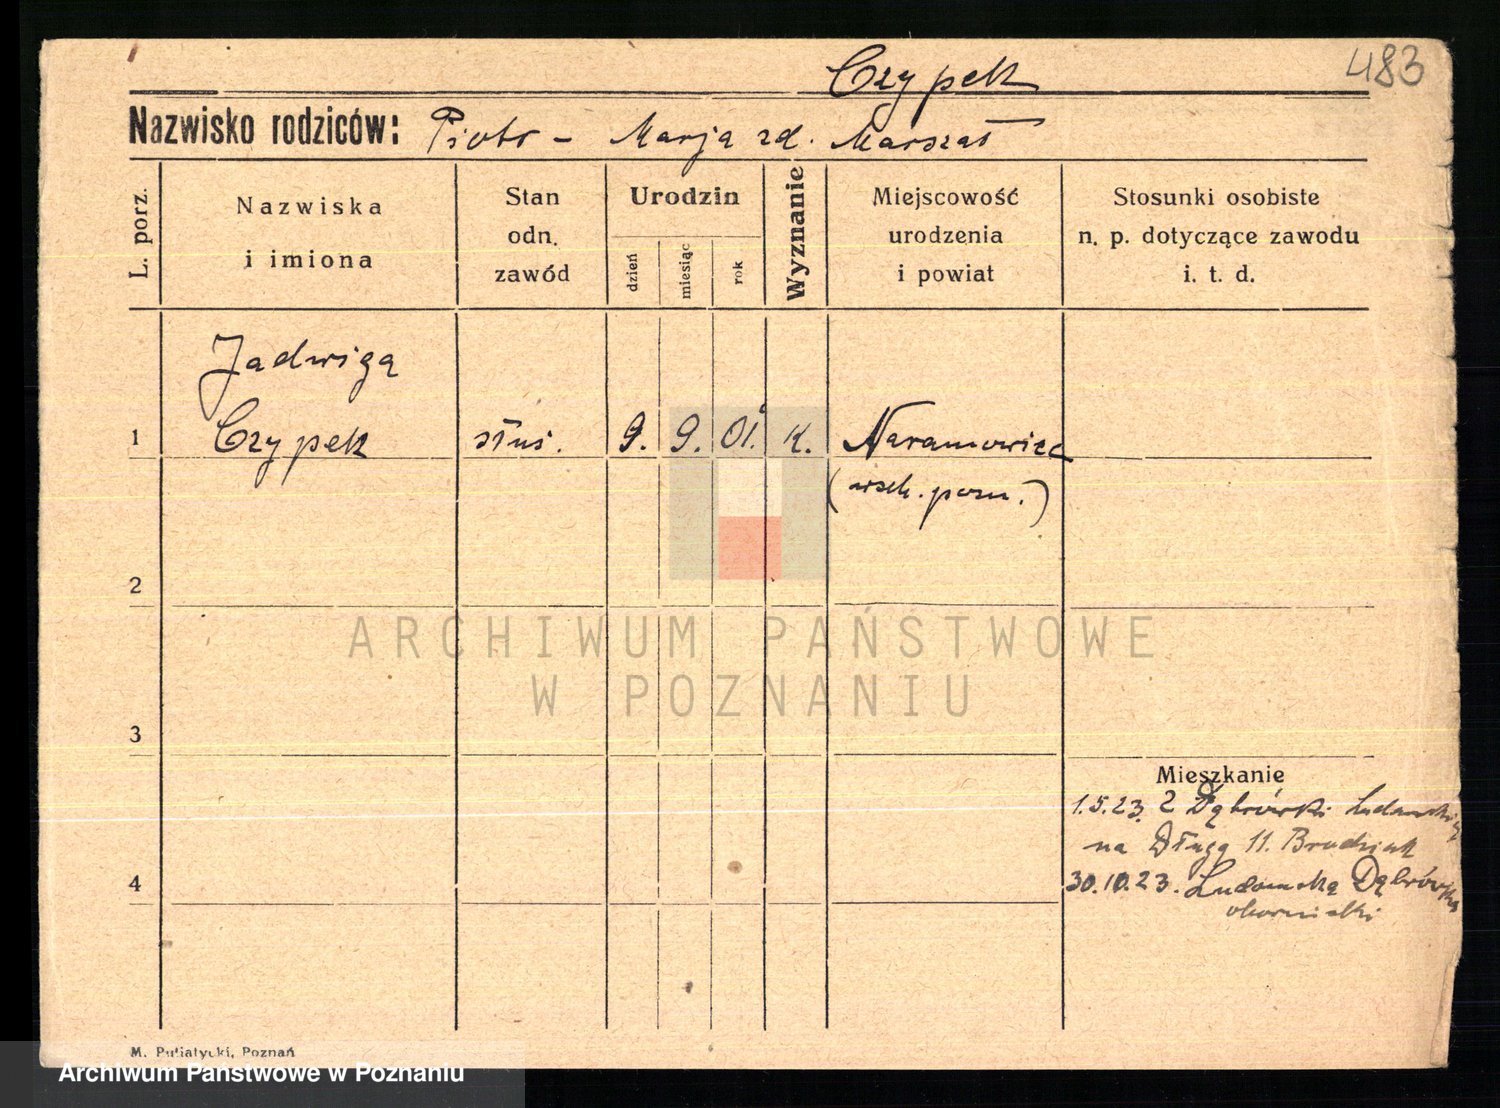 483
Czypek
Nazwisko rodziców: Piotr - Marja zd. Marszał
L. porz.
Nazwiska
i imiona
Stan
odn.
zawód
Urodzin
dzień
miesiąc
rok
Wyznanie
Miejscowość
urodzenia
i powiat
Stosunki osobiste
n. p. dotyczące zawodu
i. t. d.
Jadwiga
1 Czypek służ. 9. 9. 01. k. Naramowice
(wsch. pozn.)
2
ARCHIWUM PAŃSTWOWE
W POZNANIU
3
Mieszkanie
1.5.23. z Dąbrówki
na Długą 11. Brodziak
4
30.10.23. Ludomską Dąbrówkę
obornicki
M. Putiatycki, Poznań
Archiwum Państwowe w Poznaniu